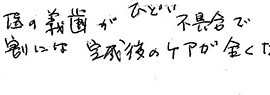 の義歯がひどい不具合で
割には完成後のケアが全くな